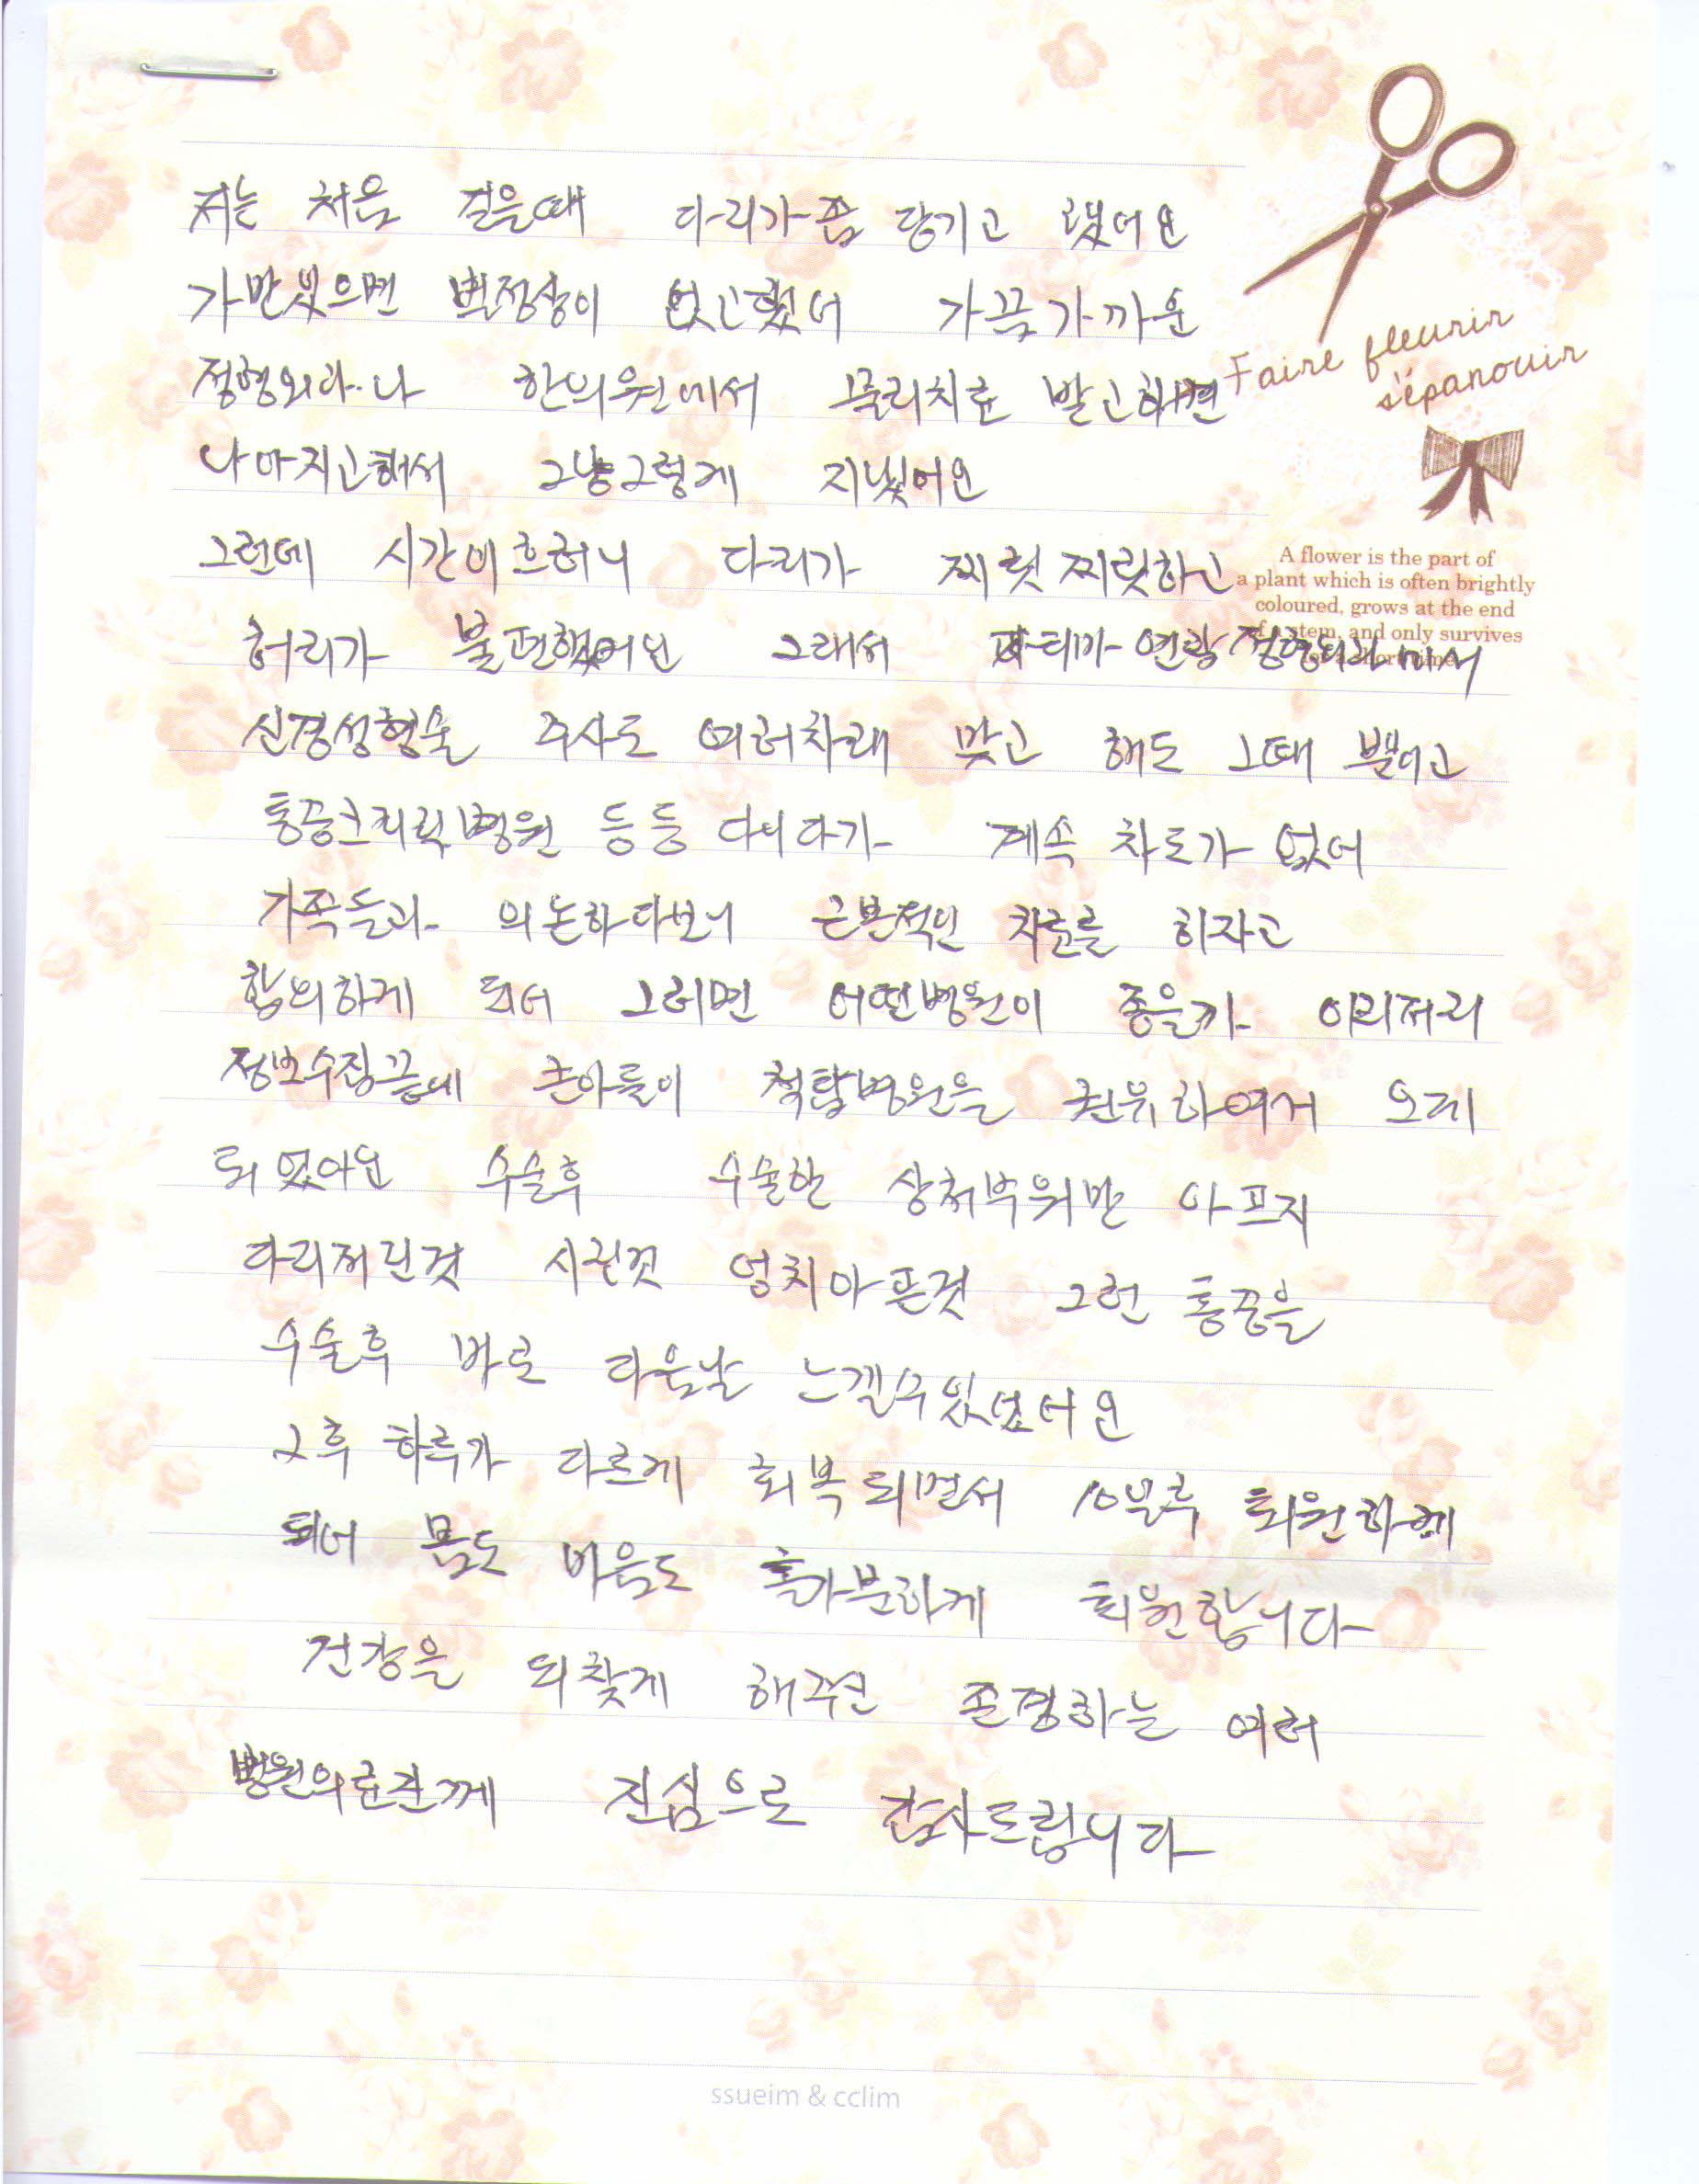 저는 처음 걸을때 다리가쫌 당기고 했어요
가만있으면 별정상이 없고했어 가끔가까운
정형외과나 한의원에서 물리치료 받고하면
나아지고해서 그냥그렇게 지냈어요
그런데 시간이흐르니 다리가 찌릿찌릿하고
허리가 불편했어요 그래서 정형외과에서
신경성형술 주사도 여러차례 맞고 해도 그때 뿐이고
통증크리닉병원 등등 다니다가 계속 차도가 없어
가족들과 의논하다보니 근본적인 치료를 하자고
합의하게 되어 그러면 어떤병원이 좋을까 이리저리
정보수집끝에 큰아들이 척탑병원을 권유하여서 오게
되었어요 수술후 수술한 상처부위만 아프지
다리저린것 시린것 엉치아픈것 그런 통증을
수술후 바로 다음날 느낄수있었어요
그후 하루가 다르게 회복되면서 10일후 퇴원하게
되어 몸도 마음도 홀가분하게 퇴원합니다
건강을 되찾게 해주신 존경하는 여러
병원의료진께 진심으로 감사드립니다
Faire fleurir
s'épanouir
A flower is the part of
a plant which is often brightly
coloured, grows at the end
stem, and only survives
ssueim & cclim